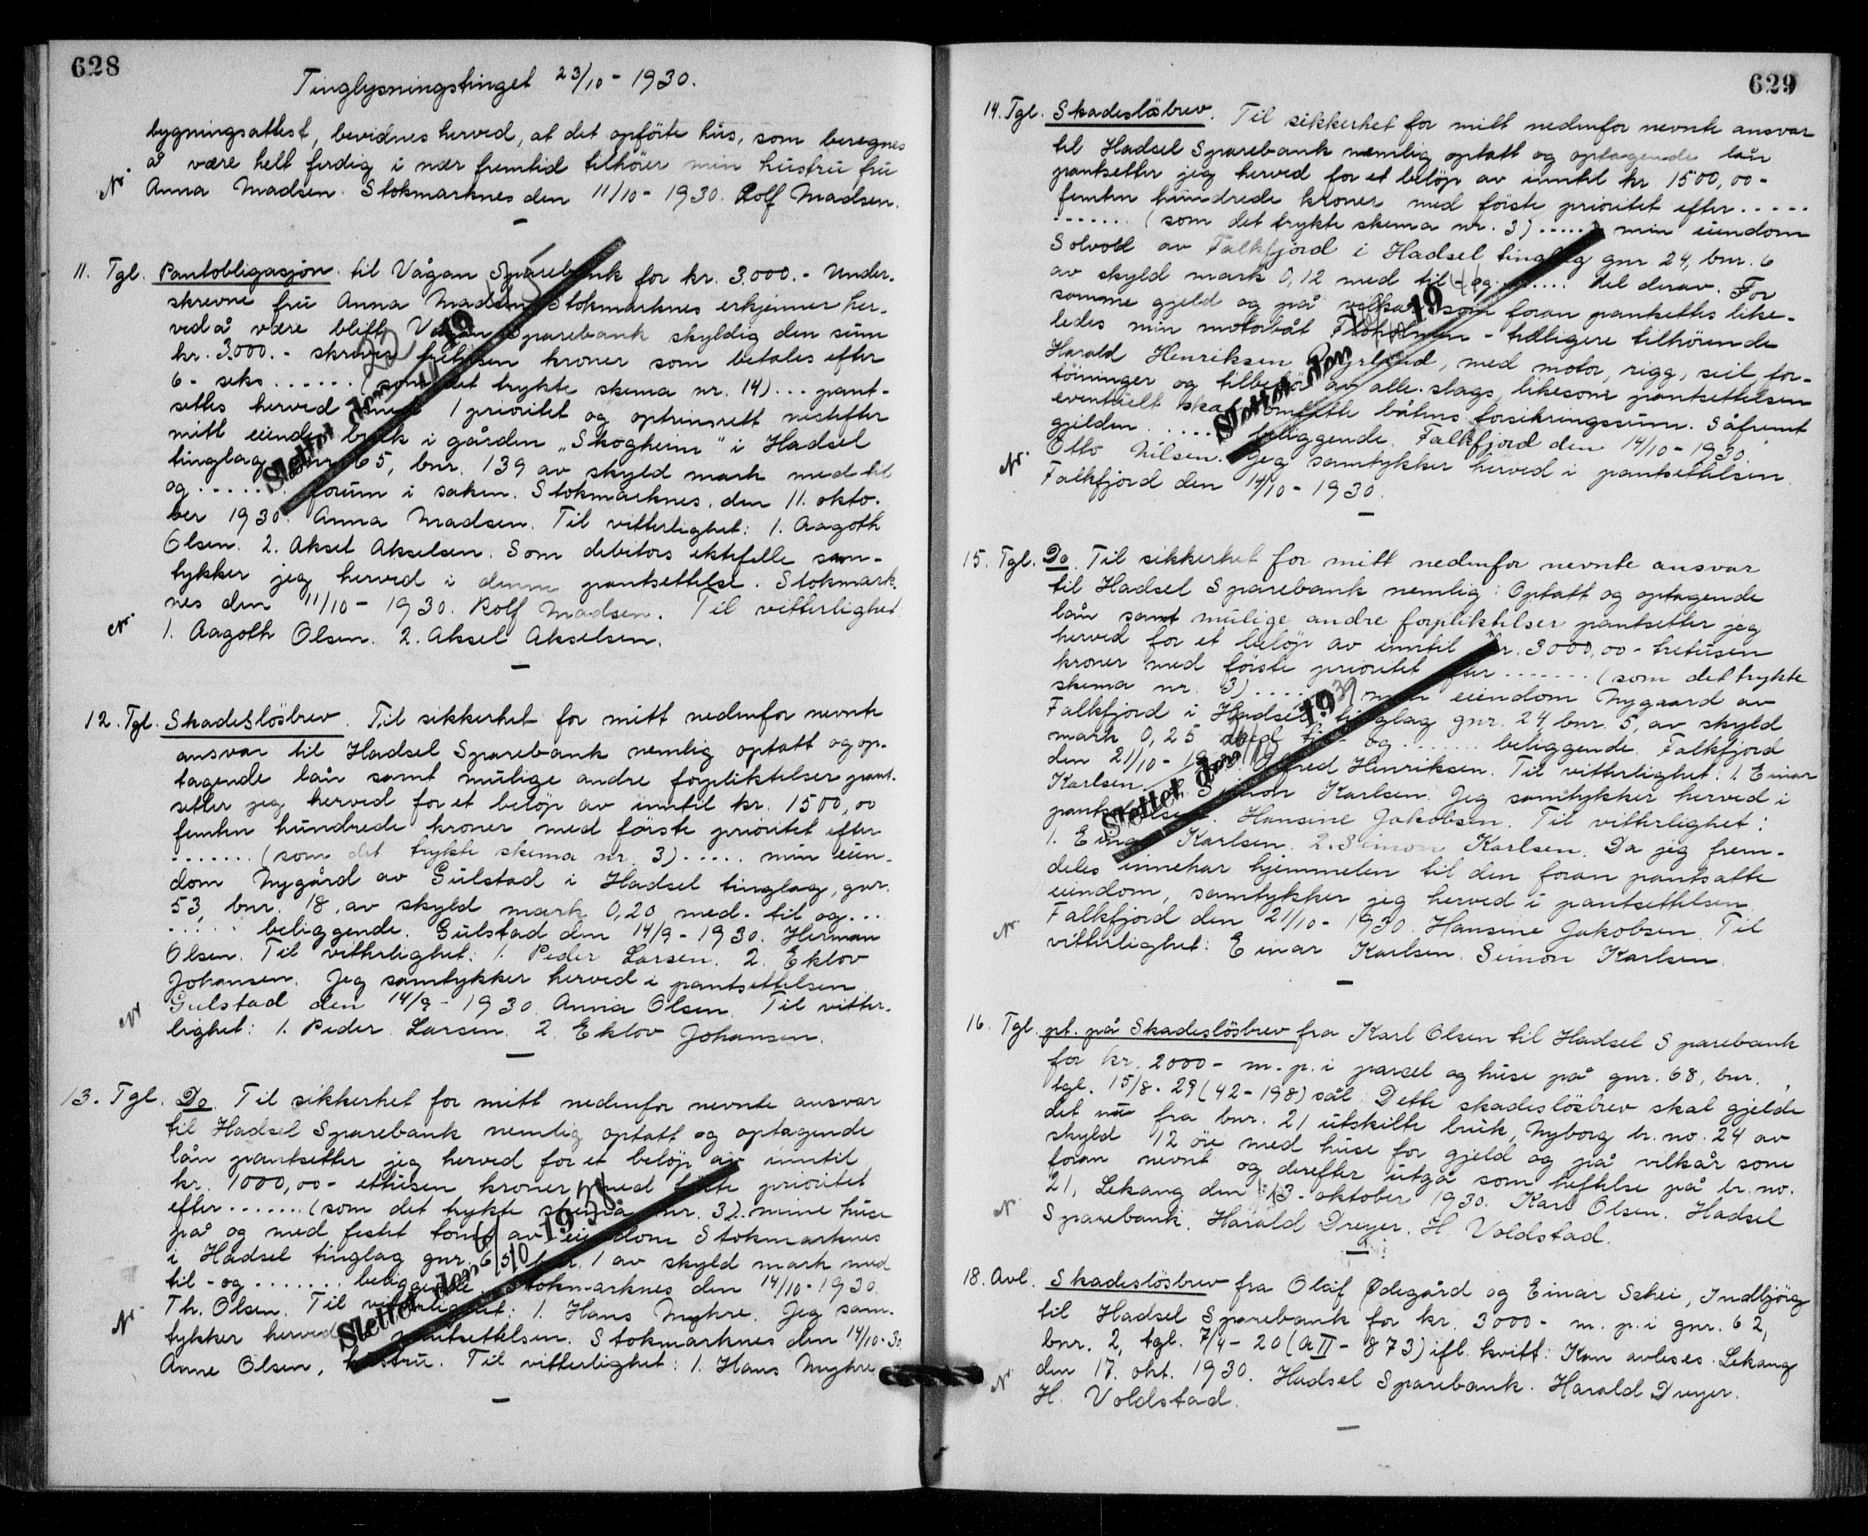 628
Tinglysningstinget 23/10 - 1930.
bygningsattest, bevidnes herved, at det opförte hus, som beregnes
å være helt ferdig i nær fremtid tilhöier min hustru fru
Anna Madsen. Stokmarknes den 11/10 - 1930. Rolf Madsen.
11. Tgl. Pantobligasjon til Vågan Sparebank for kr. 3000.- Under-
skrevne fru Anna Madsen Stokmarknes erkjenner her-
ved å være blitt Vågan Sparebank skyldig den sum
kr. 3000.- skriver tretusen kroner som betales efter
6- seks ...... (som det trykte skema nr. 14) ... pant-
settes herved med 1 prioritet og optrinsrett nestefter
mitt eiendes bruk i gården "Skogheim" i Hadsel
tinglag gnr. 65, bnr. 139 av skyld mark med til
og ....... forum i saken. Stokmarknes, den 11. okto-
ber 1930. Anna Madsen. Til vitterlighet: 1. Aagoth
Olsen. 2. Aksel Akselsen. Som debitors ektefelle sam-
tykker jeg herved i denne pantsettelse. Stokmark-
nes den 11/10 - 1930. Rolf Madsen. Til vitterlighet
1. Aagoth Olsen. 2. Aksel Akselsen.
Slettet den 19
12. Tgl. Skadeslösbrev. Til sikkerhet for mitt nedenfor nevnte
ansvar til Hadsel Sparebank nemlig optatt og op-
tagende lån samt mulige andre forpliktelser pant-
setter jeg herved for et belöp av inntil kr. 1500,00
femten hundrede kroner med förste prioritet efter
....... (som det trykte skema nr. 3) ..... min eien-
dom Nygård av Gulstad i Hadsel tinglag, gnr.
53, bnr. 18, av skyld mark 0,20 med. til og ...
..... beliggende. Gulstad den 14/9 - 1930. Herman
Olsen. Til vitterlighet: 1. Peder Larsen. 2. Eklov
Johansen. Jeg samtykker herved i pantsettelsen
Gulstad den 14/9 - 1930. Anna Olsen. Til vitter-
lighet: 1. Peder Larsen. 2. Eklov Johansen.
13. Tgl. Do. Til sikkerhet for mitt nedenfor nevnte ansvar
til Hadsel Sparebank nemlig optatt og optagende
lån pantsetter jeg herved for et belöp av inntil
kr. 1000,00- ettusen kroner med förste prioritet
efter ....... (som det trykte skema nr. 3). mine huse
på og med festet tomt av eiendom Stokmarknes
i Hadsel tinglag gnr. 65 bnr. 1 av skyld mark med
til - og ....... beliggende Stokmarknes den 14/10 - 1930
Th. Olsen. Til vitterlighet: 1. Hans Myhre. Jeg sam-
tykker herved i pantsettelsen. Stokmarknes den 14/10-30
Anne Olsen, hustru. Til vitterlighet: 1. Hans Myhre
Slettet den 6/10 1938.
629
14. Tgl. Skadeslösbrev. Til sikkerhet for mitt nedenfor nevnte ansvar
til Hadsel Sparebank nemlig optatt og optagende lån
pantsetter jeg herved for et belöp av inntil kr. 1500,00-
femten hundrede kroner med förste prioritet efter .....
....... (som det trykte skema nr. 3) ...... min eiendom
Solvold av Falkfjord i Hadsel tinglag gnr. 24, bnr. 6
av skyld mark 0,12 med til - og ..... del derav. For
samme gjeld og på vilkår som foran pantsettes like-
ledes min motorbåt - tidligere tilhörende
Harald Henriksen, med motor, rigg, seil for-
töininger og tilbehör av alle slags, likesom pantsettelsen
eventuelt skal omfatte båtens forsikringssum. Såfremt
gjelden ..... beliggende. Falkfjord den 14/10 - 1930.
Otto Nilsen. Jeg samtykker herved i pantsettelsen.
Falkfjord den 14/10 - 1930.
Slettet den 19
15. Tgl. Do. Til sikkerhet for mitt nedenfor nevnte ansvar
til Hadsel Sparebank nemlig: Optatt og optagende
lån samt mulige andre forpliktelser pantsetter jeg
herved for et belöp av inntil kr. 3000,00- tretusen
kroner med förste prioritet efter ....... (som det trykte
skema nr. 3) ..... min eiendom Nygaard av
Falkfjord i Hadsel tinglag gnr. 24 bnr. 5, av skyld
mark 0,25 med til - og ....... beliggende. Falkfjord
den 21/10 - 1930. Henriksen. Til vitterlighet: 1. Einar
Karlsen. 2. Simon Karlsen. Jeg samtykker herved i
pantsettelsen. Hansine Jakobsen. Til vitterlighet:
1. Einar Karlsen. 2. Simon Karlsen. Da jeg frem-
deles innehar hjemmelen til den foran pantsatte
eiendom, samtykker jeg herved i pantsettelsen.
Falkfjord den 21/10 - 1930. Hansine Jakobsen. Til
vitterlighet: Einar Karlsen. Simon Karlsen.
Slettet den 1939
16. Tgl. pt. på Skadeslösbrev fra Karl Olsen til Hadsel Sparebank
for kr. 2000- m. p. i parsel og huse på gnr. 68, bnr.
tgl. 15/8. 29 (42-198) sål: Dette skadeslösbrev skal gjelde
det nu fra bnr. 21 utskilte bruk, Nyborg br. no. 24 av
skyld 12 öre med huse for gjeld og på vilkår som
foran nevnt og derefter utgå som heftelse på br. no.
21, Lekang den 13. oktober 1930. Karl Olsen. Hadsel
Sparebank. Harald Dreyer. H. Voldstad.
18. Avl. Skadeslösbrev fra Olaf Ødegård og Einar Schei, Indbjörg
til Hadsel Sparebank for kr. 3000- m. p. i gnr. 62,
bnr. 2, tgl. 7/4 - 20 (A II - 873) ifl. kvitt: Kan avleses. Lekang
den 17. okt. 1930. Hadsel Sparebank. Harald Dreyer.
H. Voldstad.